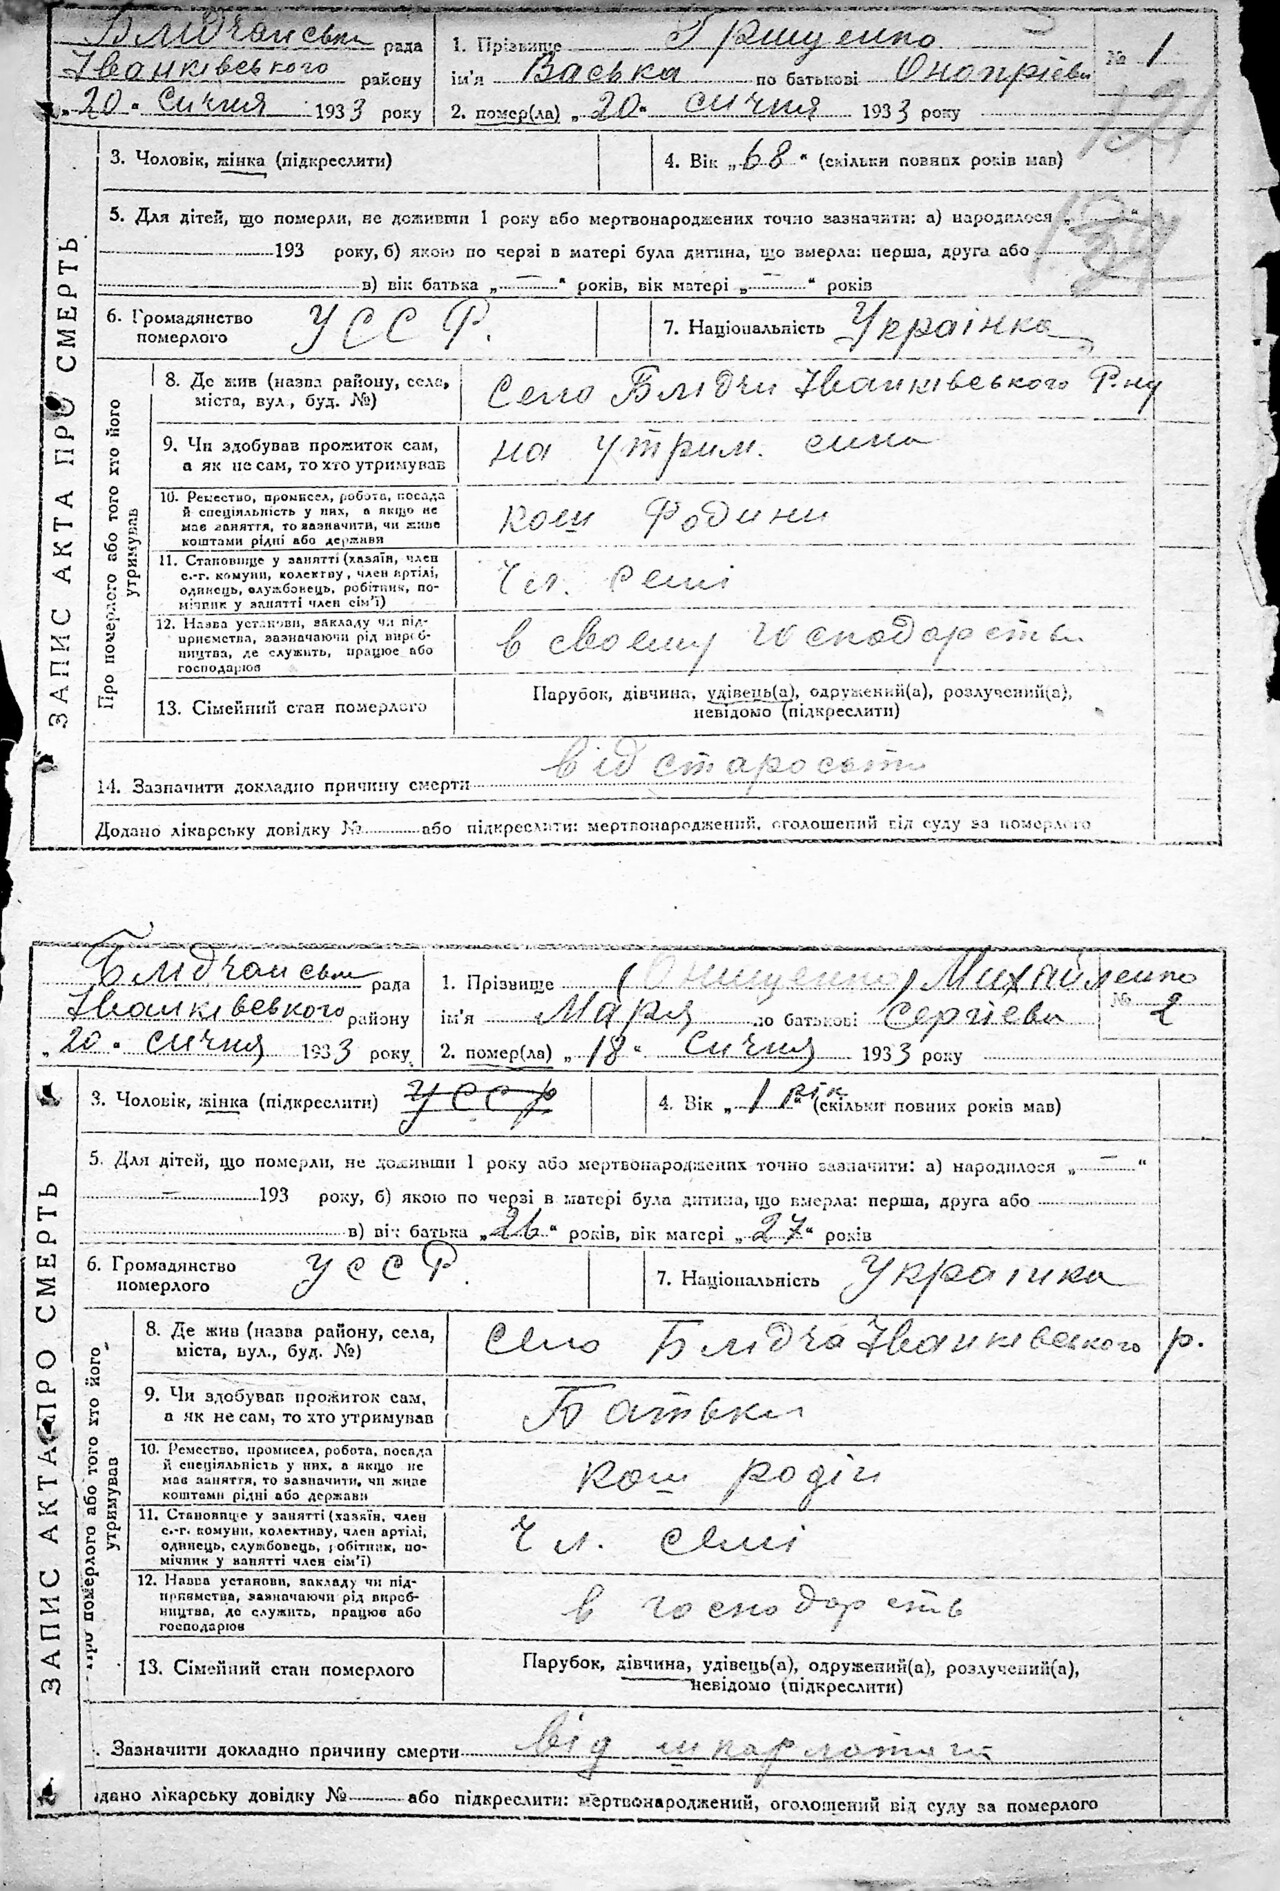 Блидчанська рада
Іванківського району
„20“ Сичня 1933 року
1. Прізвище Грищенко
ім'я Васька по батькові Онопрієви
№ 1
2. помер(ла) „20“ сичня 1933 року
121
3. Чоловік, жінка (підкреслити)
4. Вік „68“ (скільки повних років мав)
5. Для дітей, що померли, не доживши 1 року або мертвонароджених точно зазначити: а) народилося „ “
193 року, б) якою по черзі в матері була дитина, що вмерла: перша, друга або
в) вік батька „—“ років, вік матері „—“ років
6. Громадянство
померлого
УССР.
7. Національність Украінка
ЗАПИС АКТА ПРО СМЕРТЬ
Про померлого або того хто його
утримував
8. Де жив (назва району, села,
міста, вул., буд. №)
Село Блідчи Іванківського Р-ну
9. Чи здобував прожиток сам,
а як не сам, то хто утримував
на утрим. сина
10. Ремество, промисел, робота, посада
й спеціяльність у них, а якщо не
має заняття, то зазначити, чи живе
коштами рідні або держави
кош Родини
11. Становище у занятті (хазяїн, член
с.-г. комуни, колективу, член артілі,
одинець, службовець, робітник, по-
мічник у занятті член сім'ї)
чл. семі
12. Назва установи, закладу чи під-
приємства, зазначаючи рід вироб-
ництва, де служить, працює або
господарює
в своему господарстви
13. Сімейний стан померлого
Парубок, дівчина, удівець(а), одружений(а), розлучений(а),
невідомо (підкреслити)
14. Зазначити докладно причину смерти від старости
Додано лікарську довідку № або підкреслити: мертвонароджений, оголошений від суду за померлого
Блидчанськи рада
Іванківського району
„20“ сичня 1933 року
1. Прізвище (Онищенко) Михайленко
ім'я Марія по батькові Сергієви
№ 2
2. помер(ла) „18“ Сичня 1933 року
3. Чоловік, жінка (підкреслити) УССР
4. Вік „1 рік“ (скільки повних років мав)
5. Для дітей, що померли, не доживши 1 року або мертвонароджених точно зазначити: а) народилося „—“
— 193 року, б) якою по черзі в матері була дитина, що вмерла: перша, друга або
в) вік батька „26“ років, вік матері „27“ років
6. Громадянство
померлого
УССР.
7. Національність Украінка
ЗАПИС АКТА ПРО СМЕРТЬ
Про померлого або того хто його
утримував
8. Де жив (назва району, села,
міста, вул., буд. №)
село Блідча Іванківського р.
9. Чи здобував прожиток сам,
а як не сам, то хто утримував
Батьки
10. Ремество, промисел, робота, посада
й спеціяльність у них, а якщо не
має заняття, то зазначити, чи живе
коштами рідні або держави
кош родін
11. Становище у занятті (хазяїн, член
с.-г. комуни, колективу, член артілі,
одинець, службовець, робітник, по-
мічник у занятті член сім'ї)
Чл. семі
12. Назва установи, закладу чи під-
приємства, зазначаючи рід вироб-
ництва, де служить, працює або
господарює
в господарстві
13. Сімейний стан померлого
Парубок, дівчина, удівець(а), одружений(а), розлучений(а),
невідомо (підкреслити)
. Зазначити докладно причину смерти від шкарлатини
дано лікарську довідку № або підкреслити: мертвонароджений, оголошений від суду за померлого